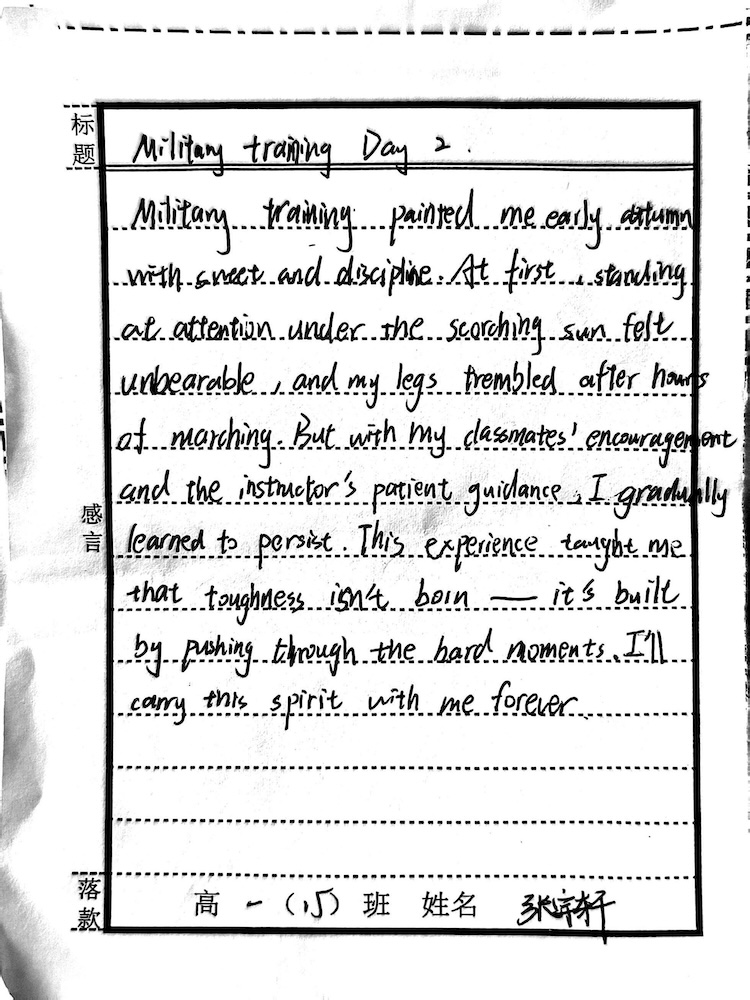 标题
Military training Day 2.
Military training painted me early autumn
with sweet and discipline. At first, standing
at attention under the scorching sun felt
unbearable, and my legs trembled after hours
of marching. But with my classmates' encouragement
and the instructor's patient guidance, I gradually
learned to persist. This experience taught me
that toughness isn't born — it's built
by pushing through the hard moments. I'll
carry this spirit with me forever.
感言
落款
高一(15)班 姓名 张宇轩